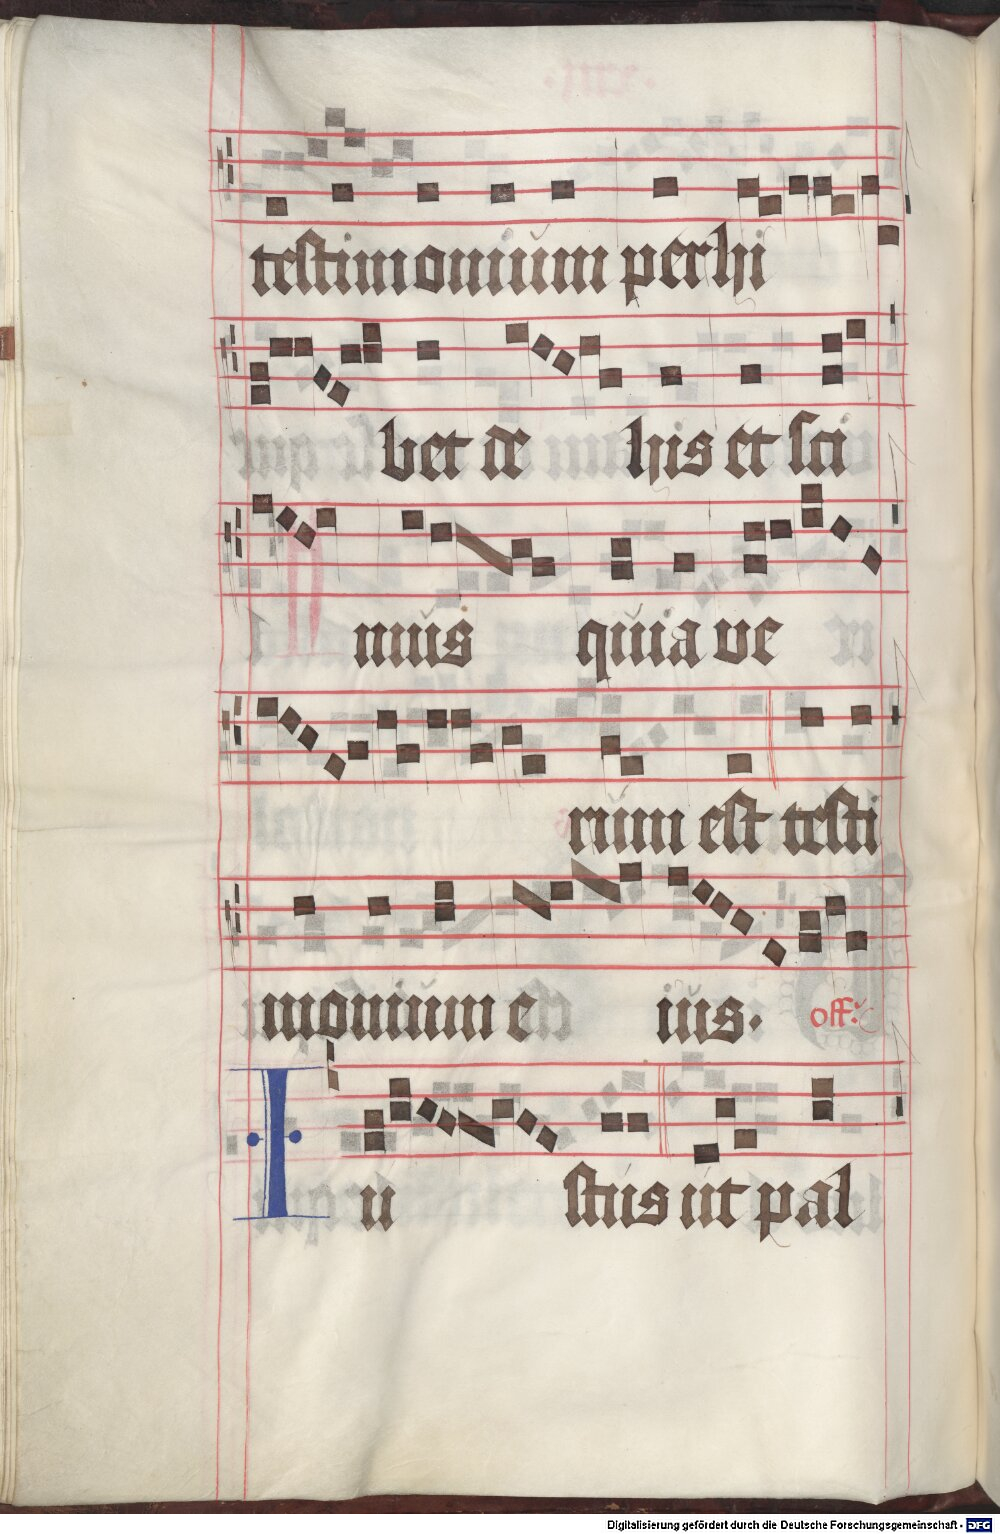 testimonium perhi
bet de his et sci
mus quia ve
rum est testi
monium e ius.
off:
Iu stus ut pal
Digitalisierung gefördert durch die Deutsche Forschungsgemeinschaft - DFG